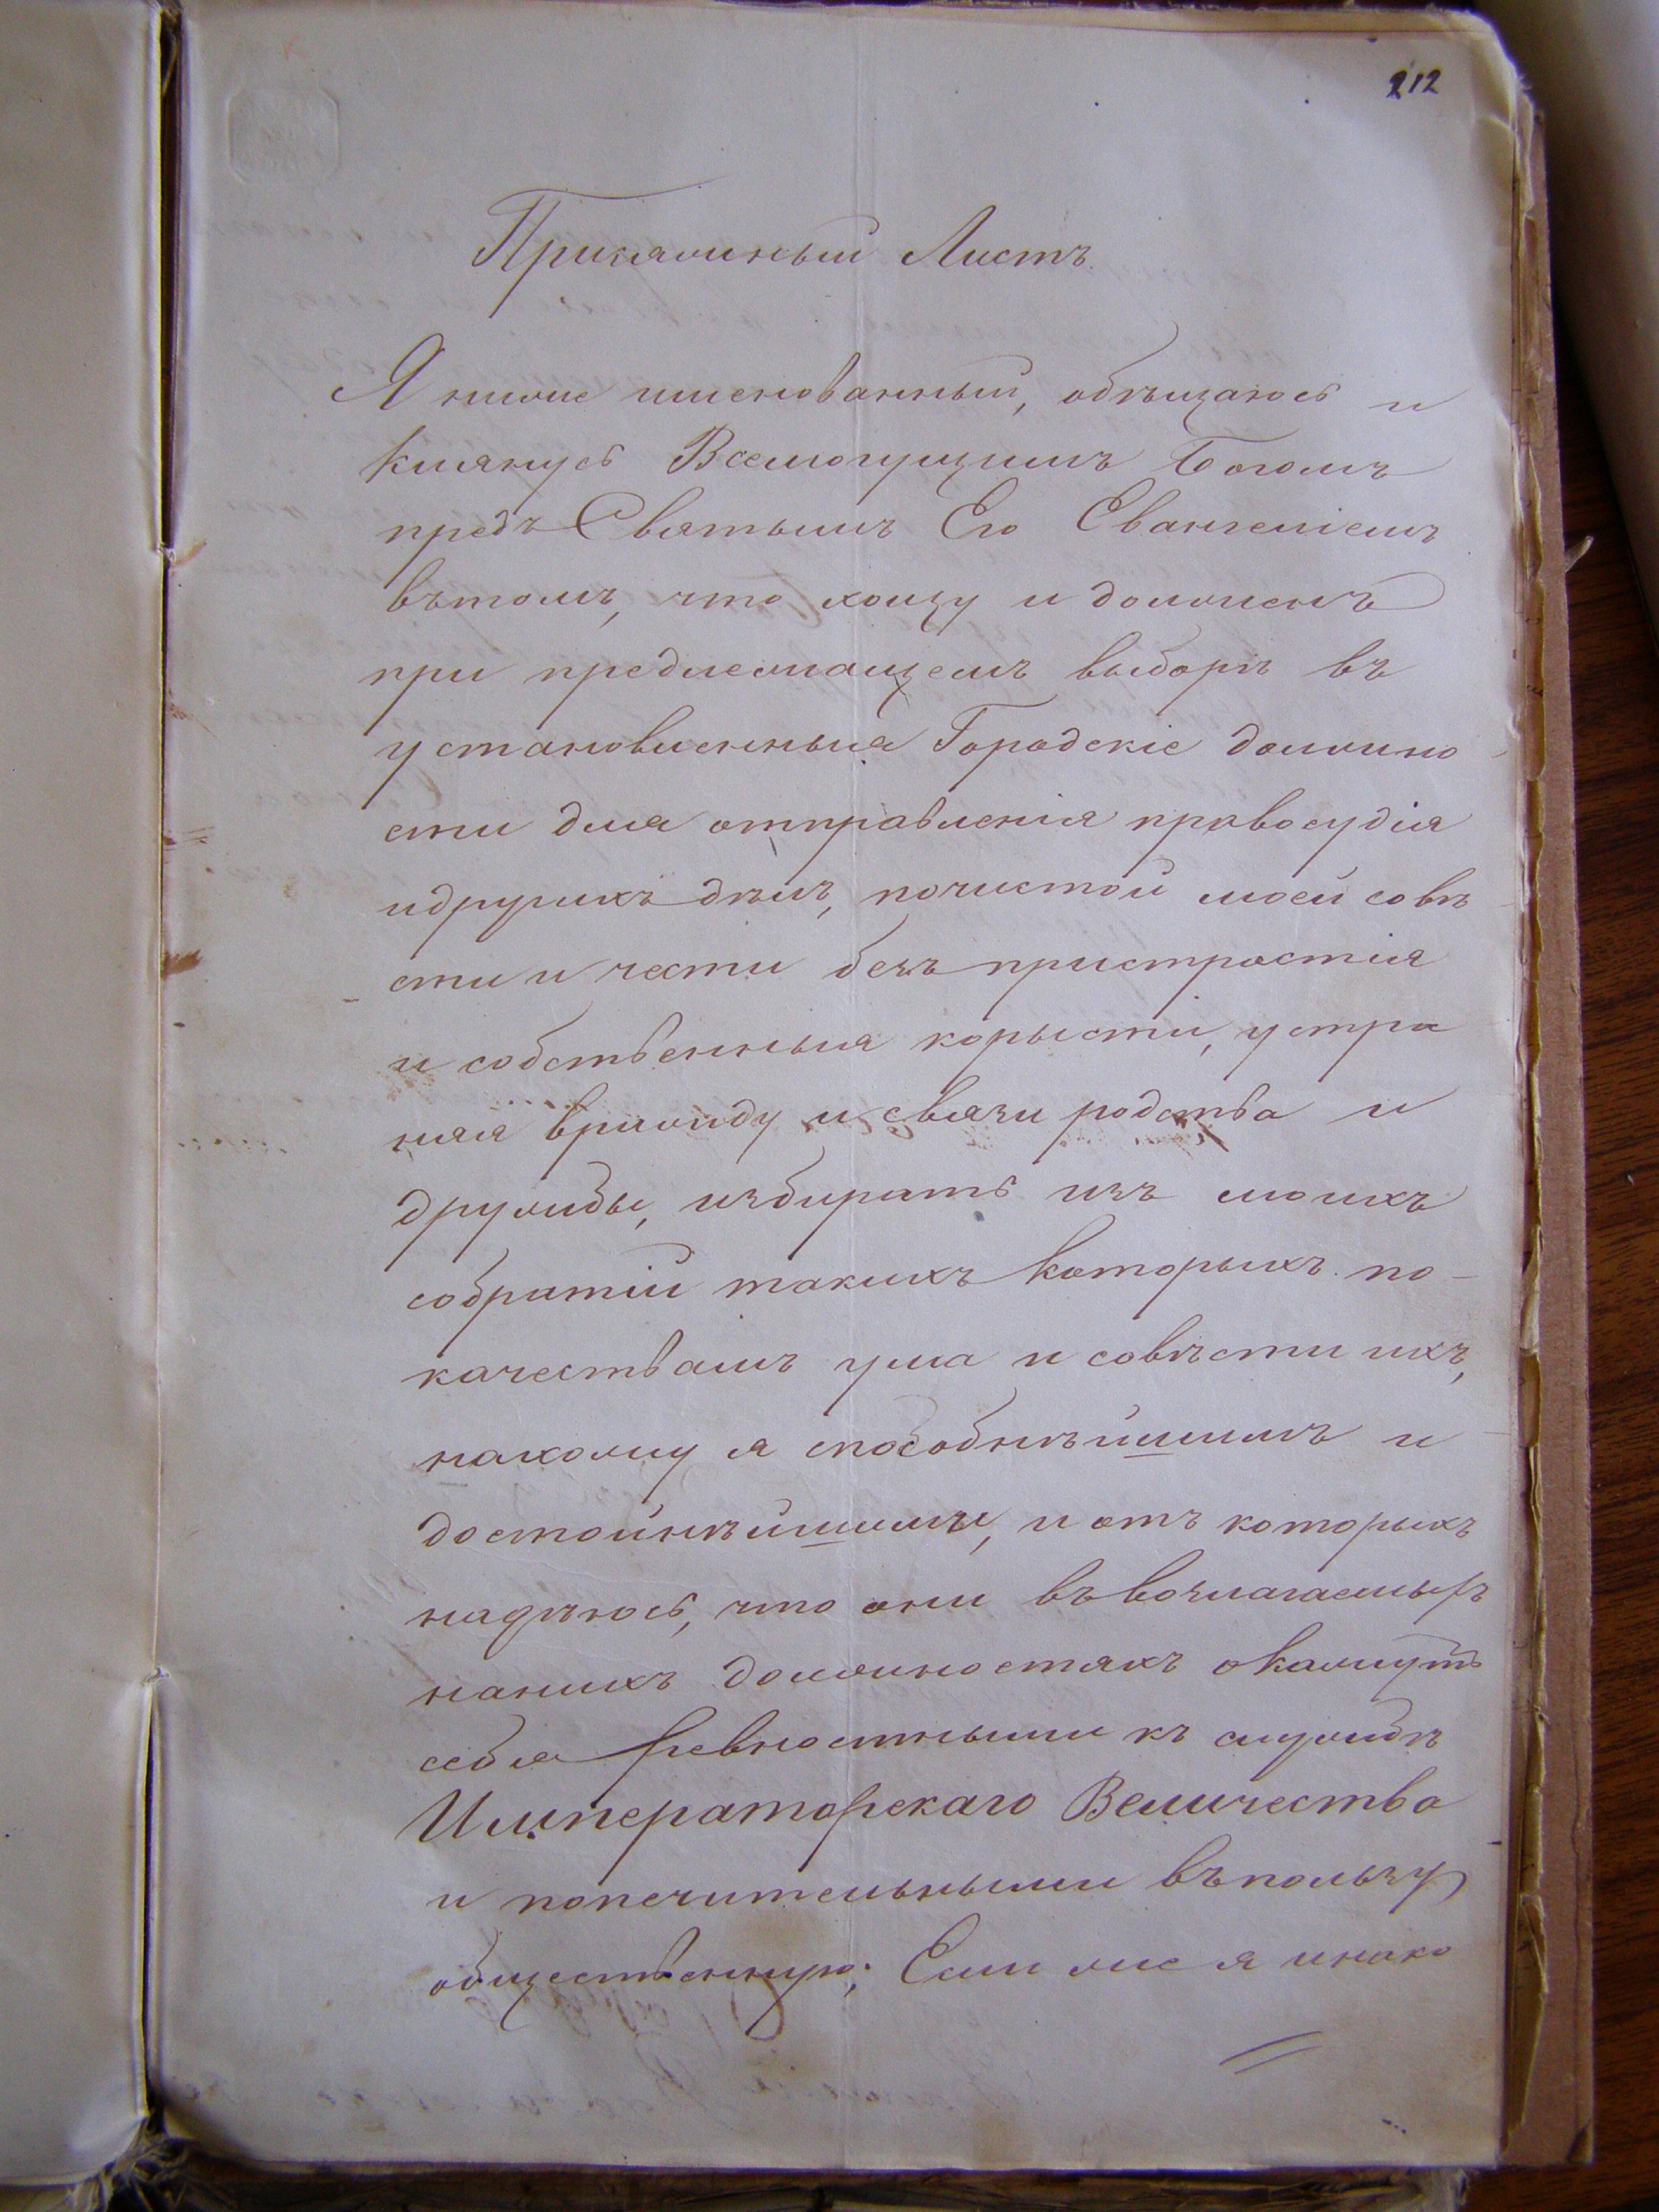 212
Присяжный Листъ.
Я ниже именованный, обѣщаюсь и
клянусь Всемогущимъ Богомъ
предъ Святымъ Его Евангеліемъ
вътомъ, что хощу и долженъ
при предлежащемъ выборѣ въ
установленныя Городскіе должно-
сти для отправленія правосудія
идругихъ дѣлъ, почистой моей совѣ-
сти и чести безъ пристрастія
и собственныя корысти, устра
няя вражду и связи родства и
дружбы, избирать изъ моихъ
собратій такихъ которыхъ по-
качествамъ ума и совѣсти ихъ,
нахожу я способнѣйшимъ и
достойнѣйшимъ, и отъ которыхъ
надѣюсь, что они въ возлагаемыхъ
нанихъ должностяхъ окажутъ
себя ревностными къ службѣ
Императорскаго Величества
и попечительными въпользу
общественную; Если же я инако